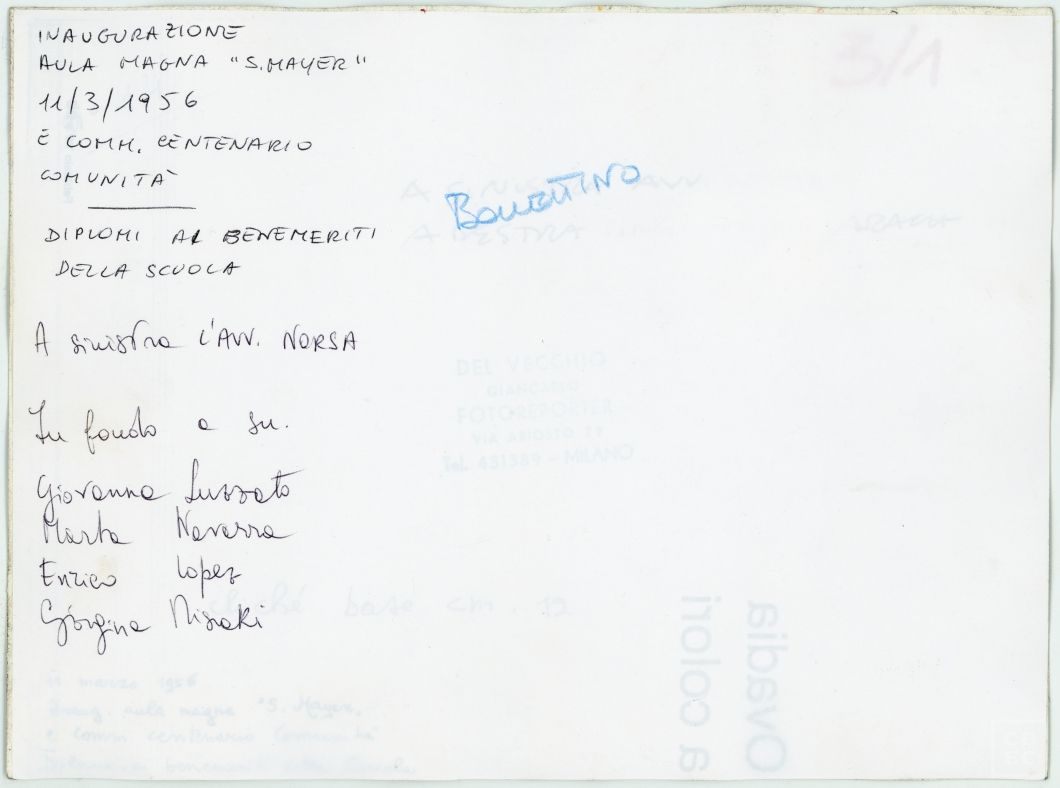 INAUGURAZIONE
AULA MAGNA "S. MAYER"
11/3/1956
E COMM. CENTENARIO
COMUNITÀ
DIPLOMI AI BENEMERITI
DELLA SCUOLA
A sinistra l'AVV. NORSA
In fondo a sn.
Giovanna Luzzato
Marta Navarra
Enrico Lopez
Giorgina Misraki
3/1
A SINISTRA AVV.
A DESTRA
DEL VECCHIO
GIANCARLO
FOTOREPORTER
VIA ARIOSTO
Tel. 451389 - MILANO
cliché base cm. 12
11 marzo 1956
Inaug. aula magna "S. Mayer"
e comm centenario Comunità
a colori
Ovadia